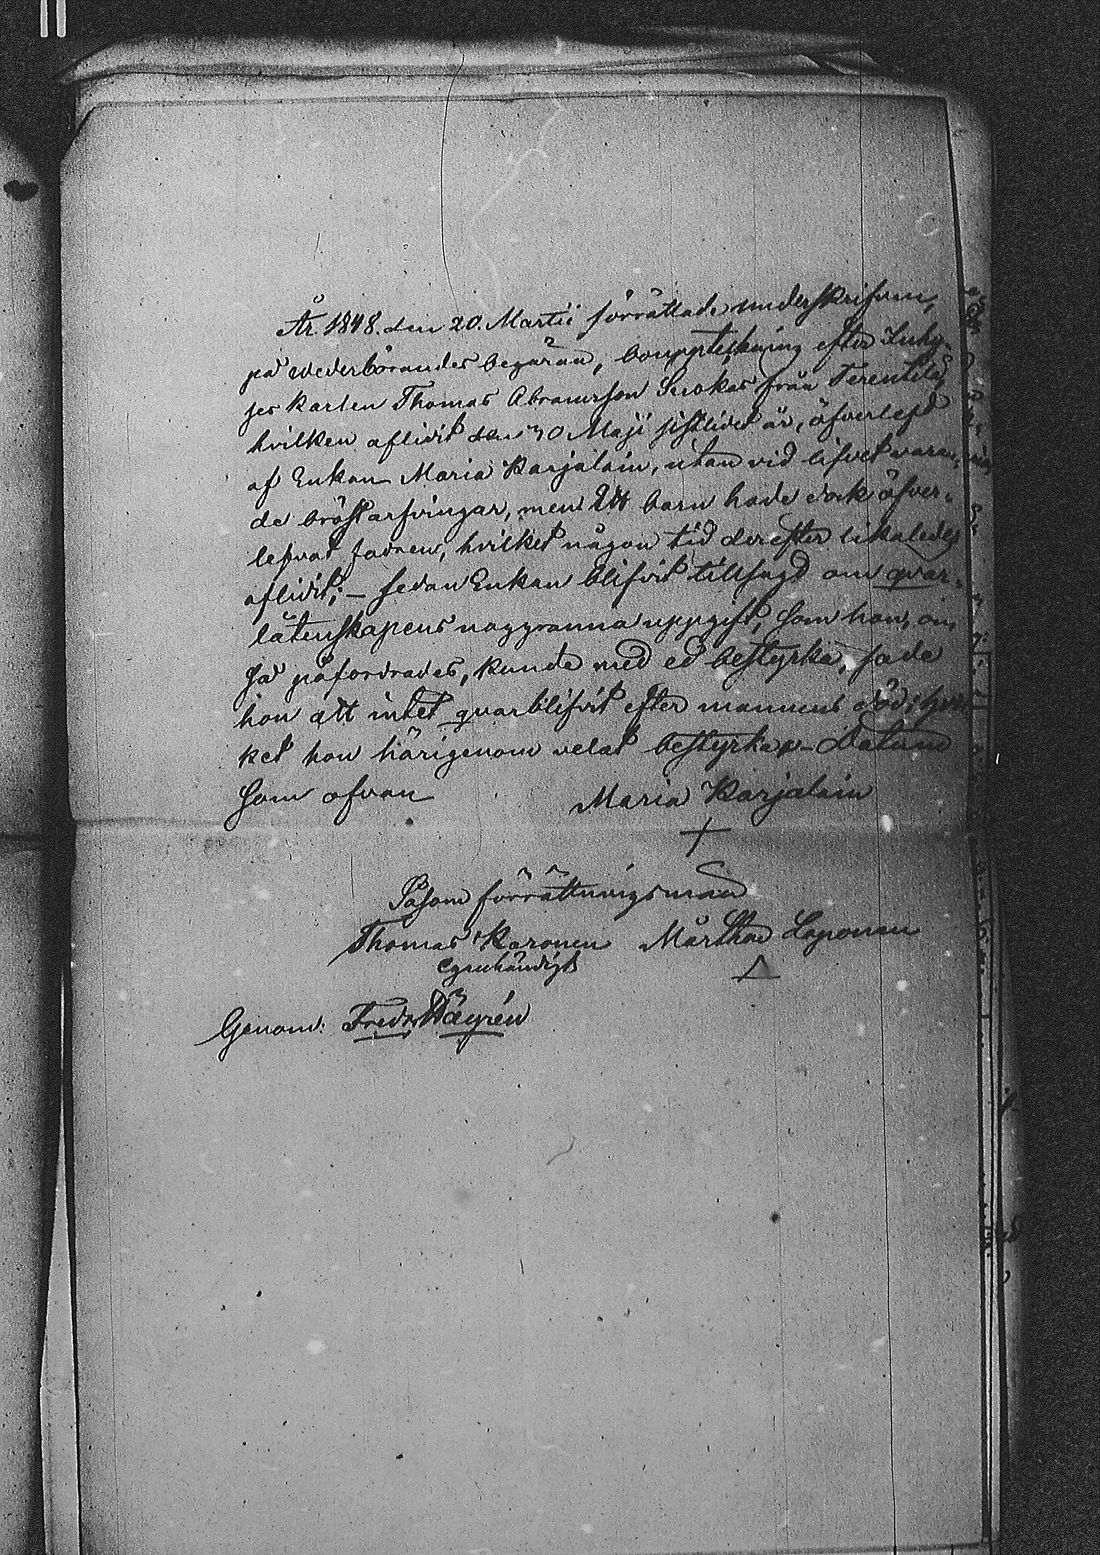 År 1848 den 20 Martii förrättade underskrifven,
på wederbörandes begäran, bouppteckning efter Inhy-
ses karlen Thomas Abramsson Suokas från Terentilä,
hvilken aflidit den 30 Maji sistlidet år, öfverlefd
af Enkan Maria Karjalain, utan vid lifvet varan-
de bröstarfvingar, men Ett barn hade dock öfver-
lefvat fadren, hvilket någon tid derefter likaledes
aflidit; – sedan Enkan blifvit tillsagd om qvar-
låtenskapens noggranna uppgift, som hon, om
så påfordrades, kunde med ed bestyrka, sade
hon att intet qvarblifvit efter mannens död; hvil-
ket hon härigenom velat bestyrka – Datum
som ofvan
Maria Karjalain
Såsom förrättningsman
Thomas Karonen Mårthen Laponen
egenhändigt
Genom: Fredr Wägrén